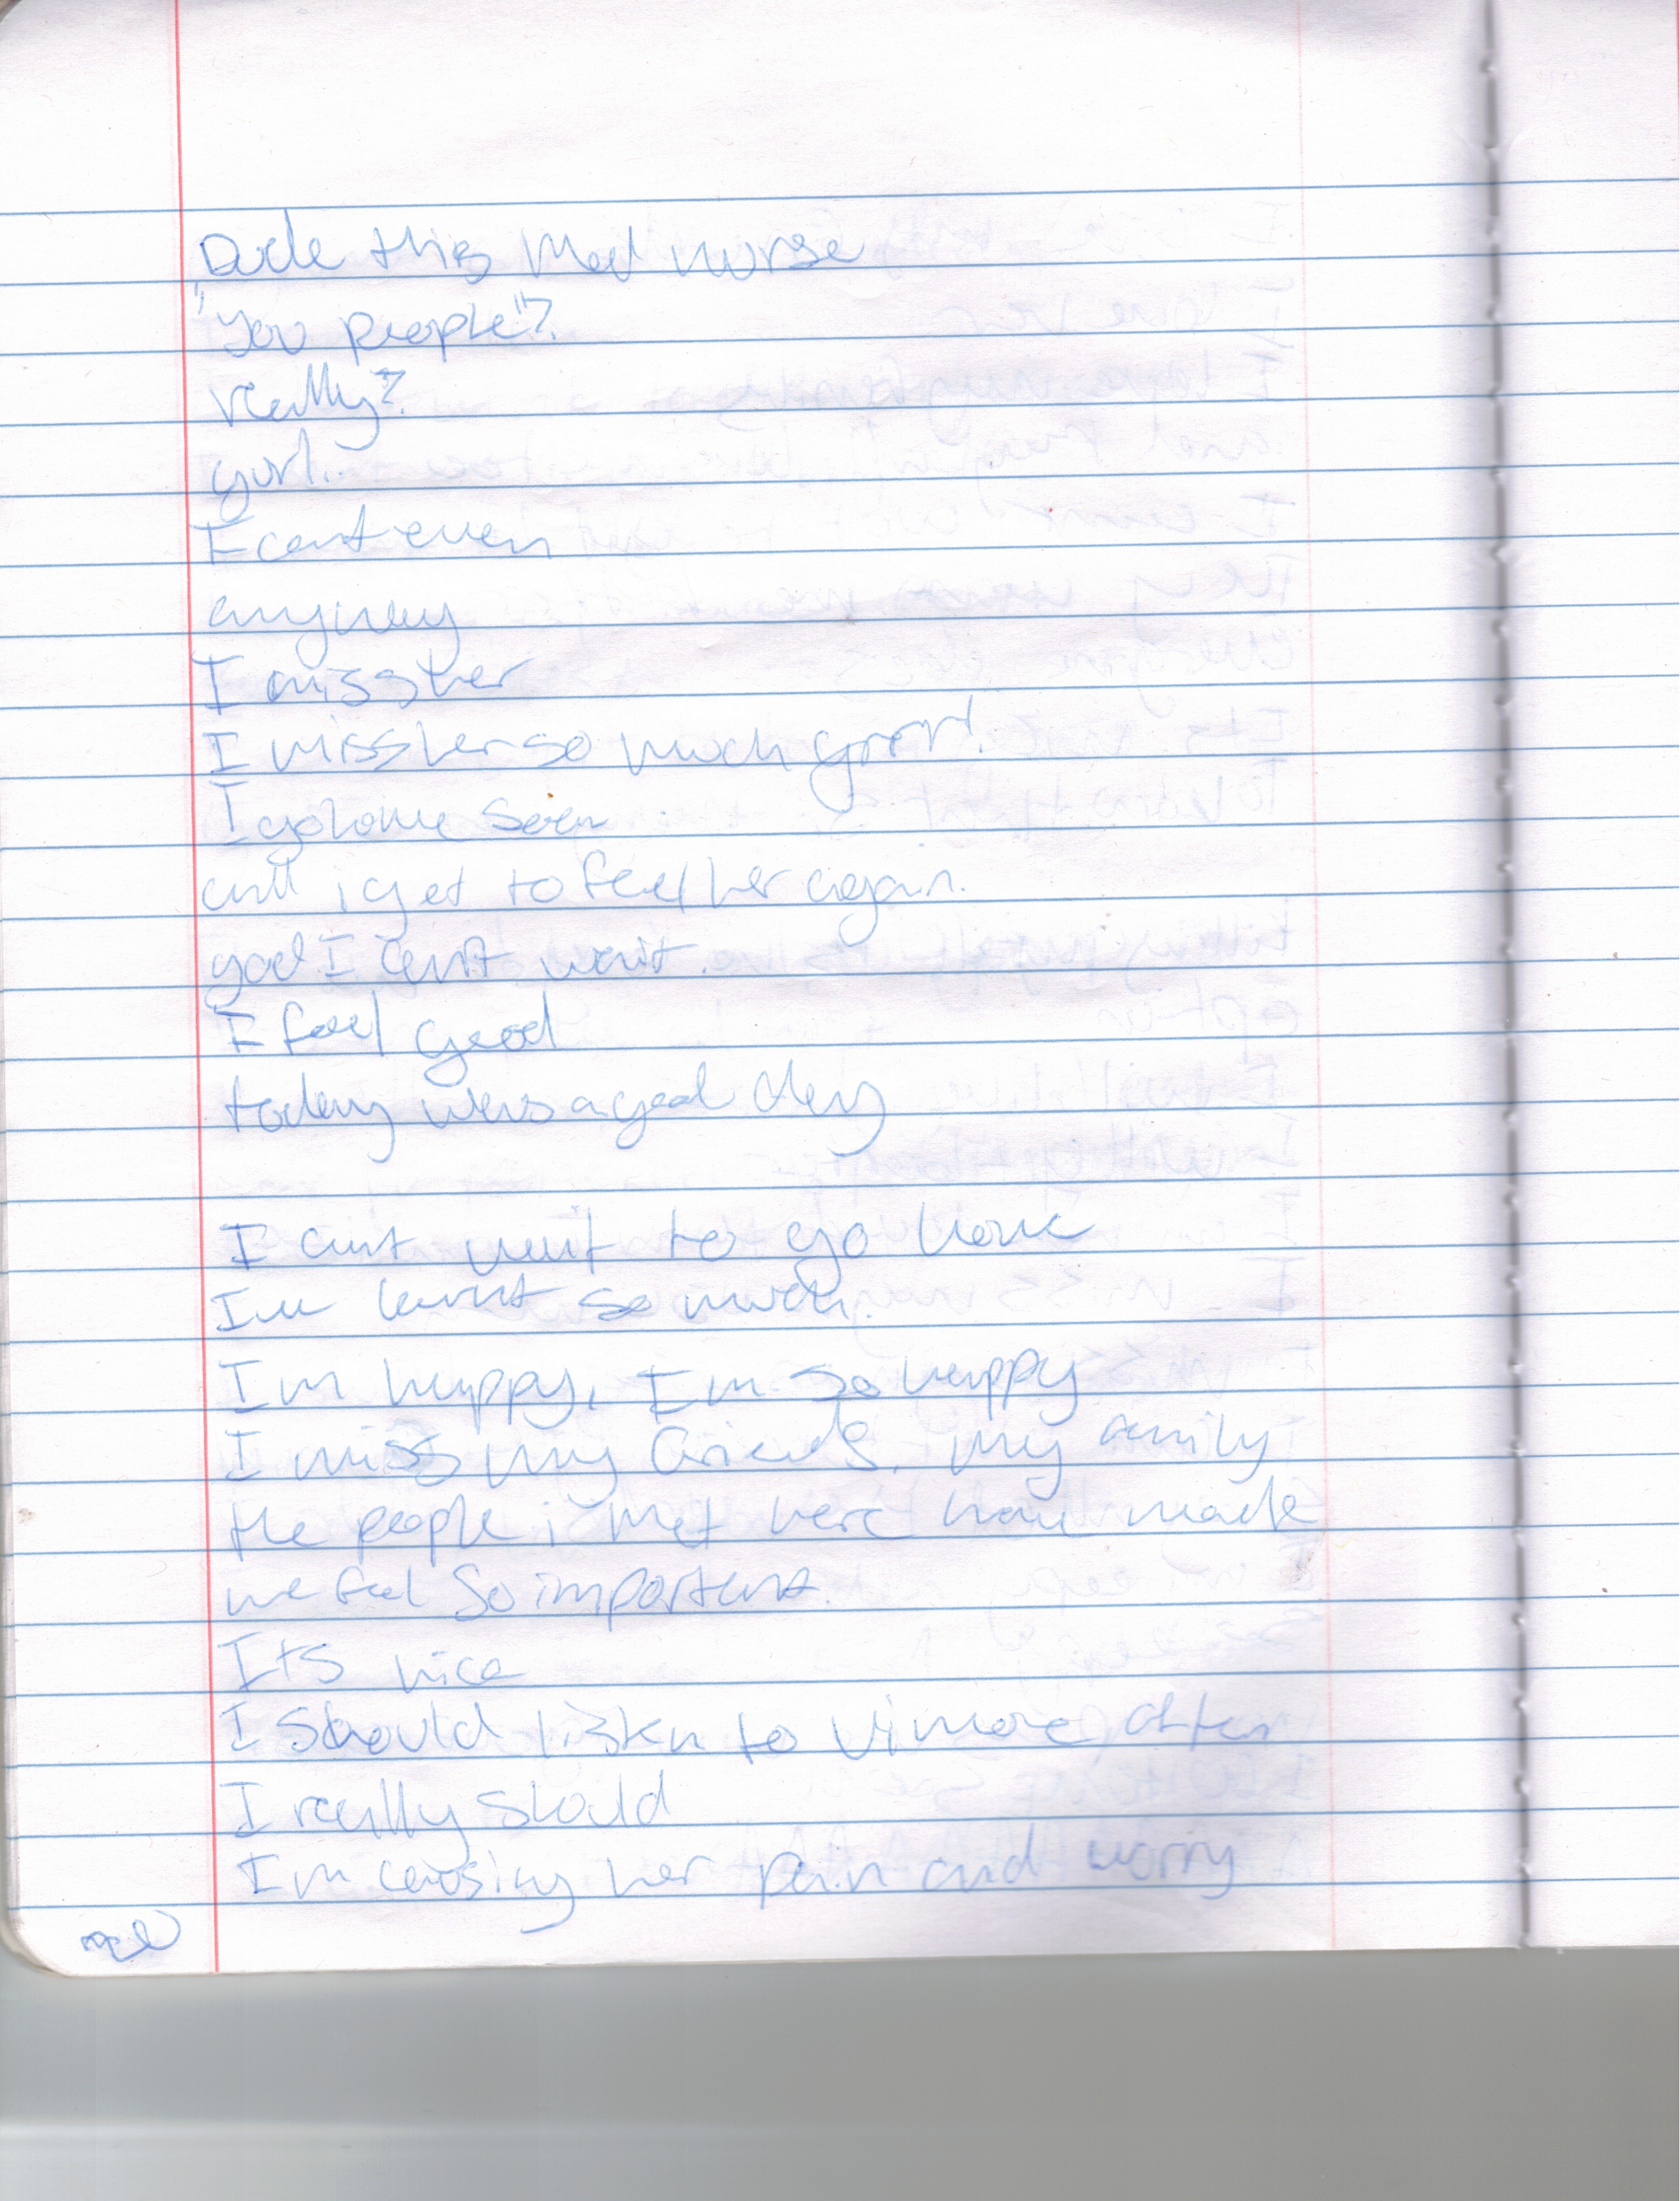 Dude this Med nurse
"You people"?
really?
gurl..
I cant even
anyway
I miss her
I miss her so much grrr!
I go home soon
and i get to feel her again.
god I cant wait.
I feel good
today was a good day
I cant wait to go home
I've learnt so much.
Im happy, Im so happy
I miss my friends, my family
the people i met here have made
me feel so important.
Its nice
I should listen to Vi more often
I really should
Im causing her pain and worry